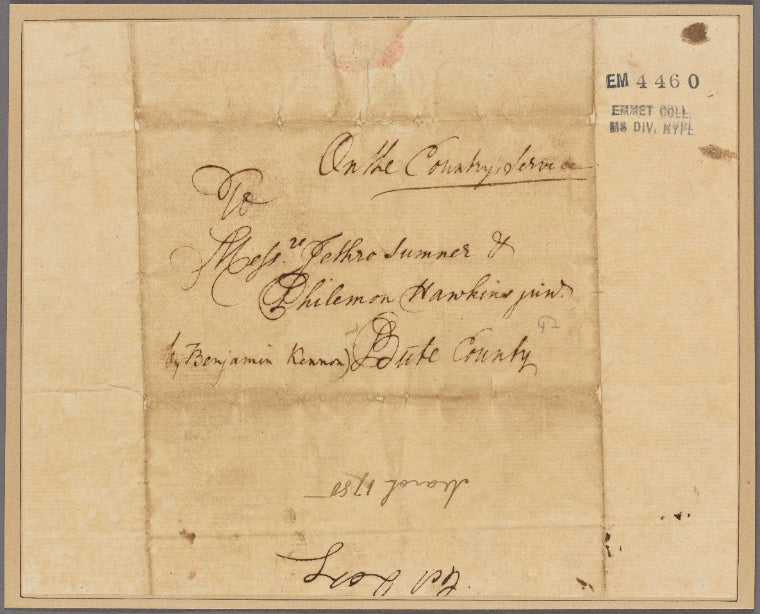 EM 4460
EMMET COLL.
MS DIV. NYPL
On the Country's Service
To
Mess.rs Jethro Sumner &
Philemon Hawkins junr.
by Benjamin Kennon) Bute County
March 1780